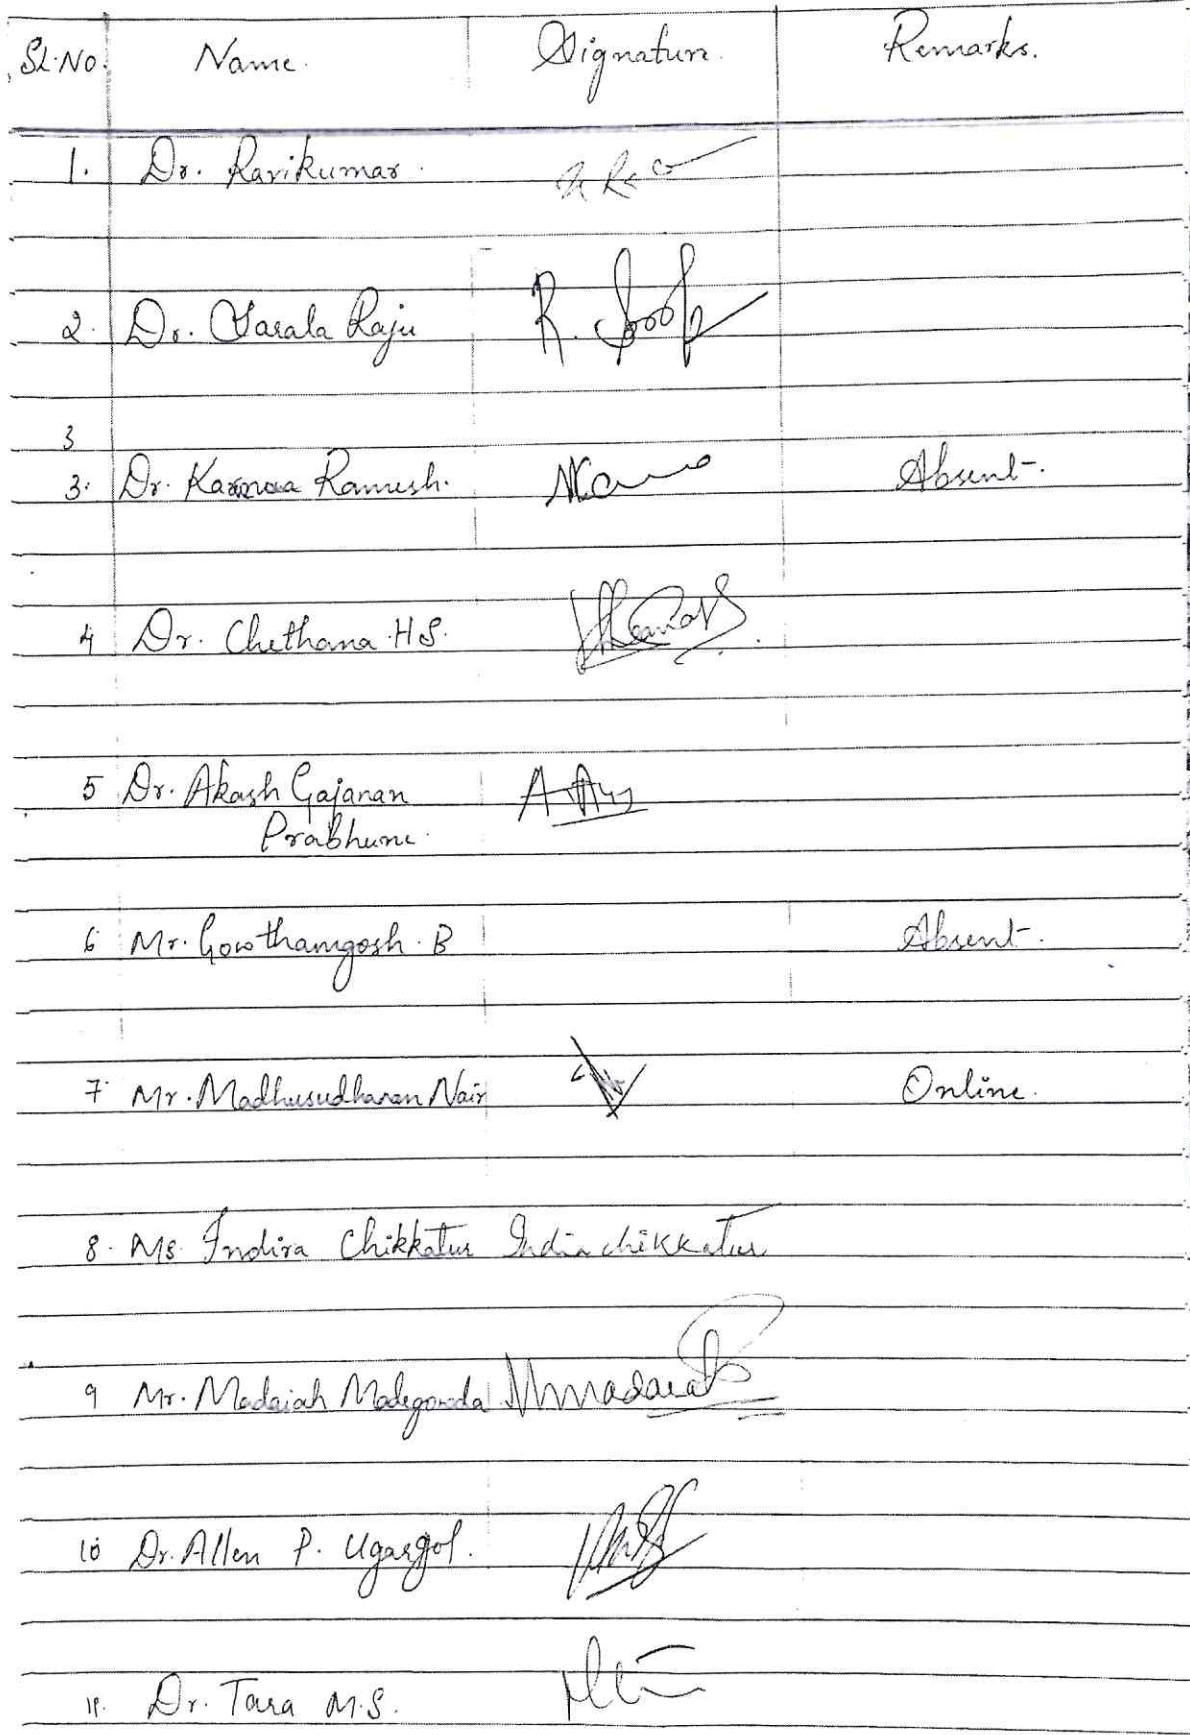 Sl.No. Name. Signature. Remarks.
1. Dr. Ravikumar.
2. Dr. Sarala Raju
3
3. Dr. Ramesh. Absent.
4 Dr. Chethana H S.
5 Dr. Akash Gajanan
Prabhune.
6 Mr. Gowthamgosh. B Absent.
7 Mr. Madhusudhanan Nair Online.
8. Ms. Indira Chikkatur Indira chikkatur
9 Mr. Madaiah Madegowda Mmadaiah
10 Dr. Allen P. Ugargol.
11. Dr. Tara M.S.